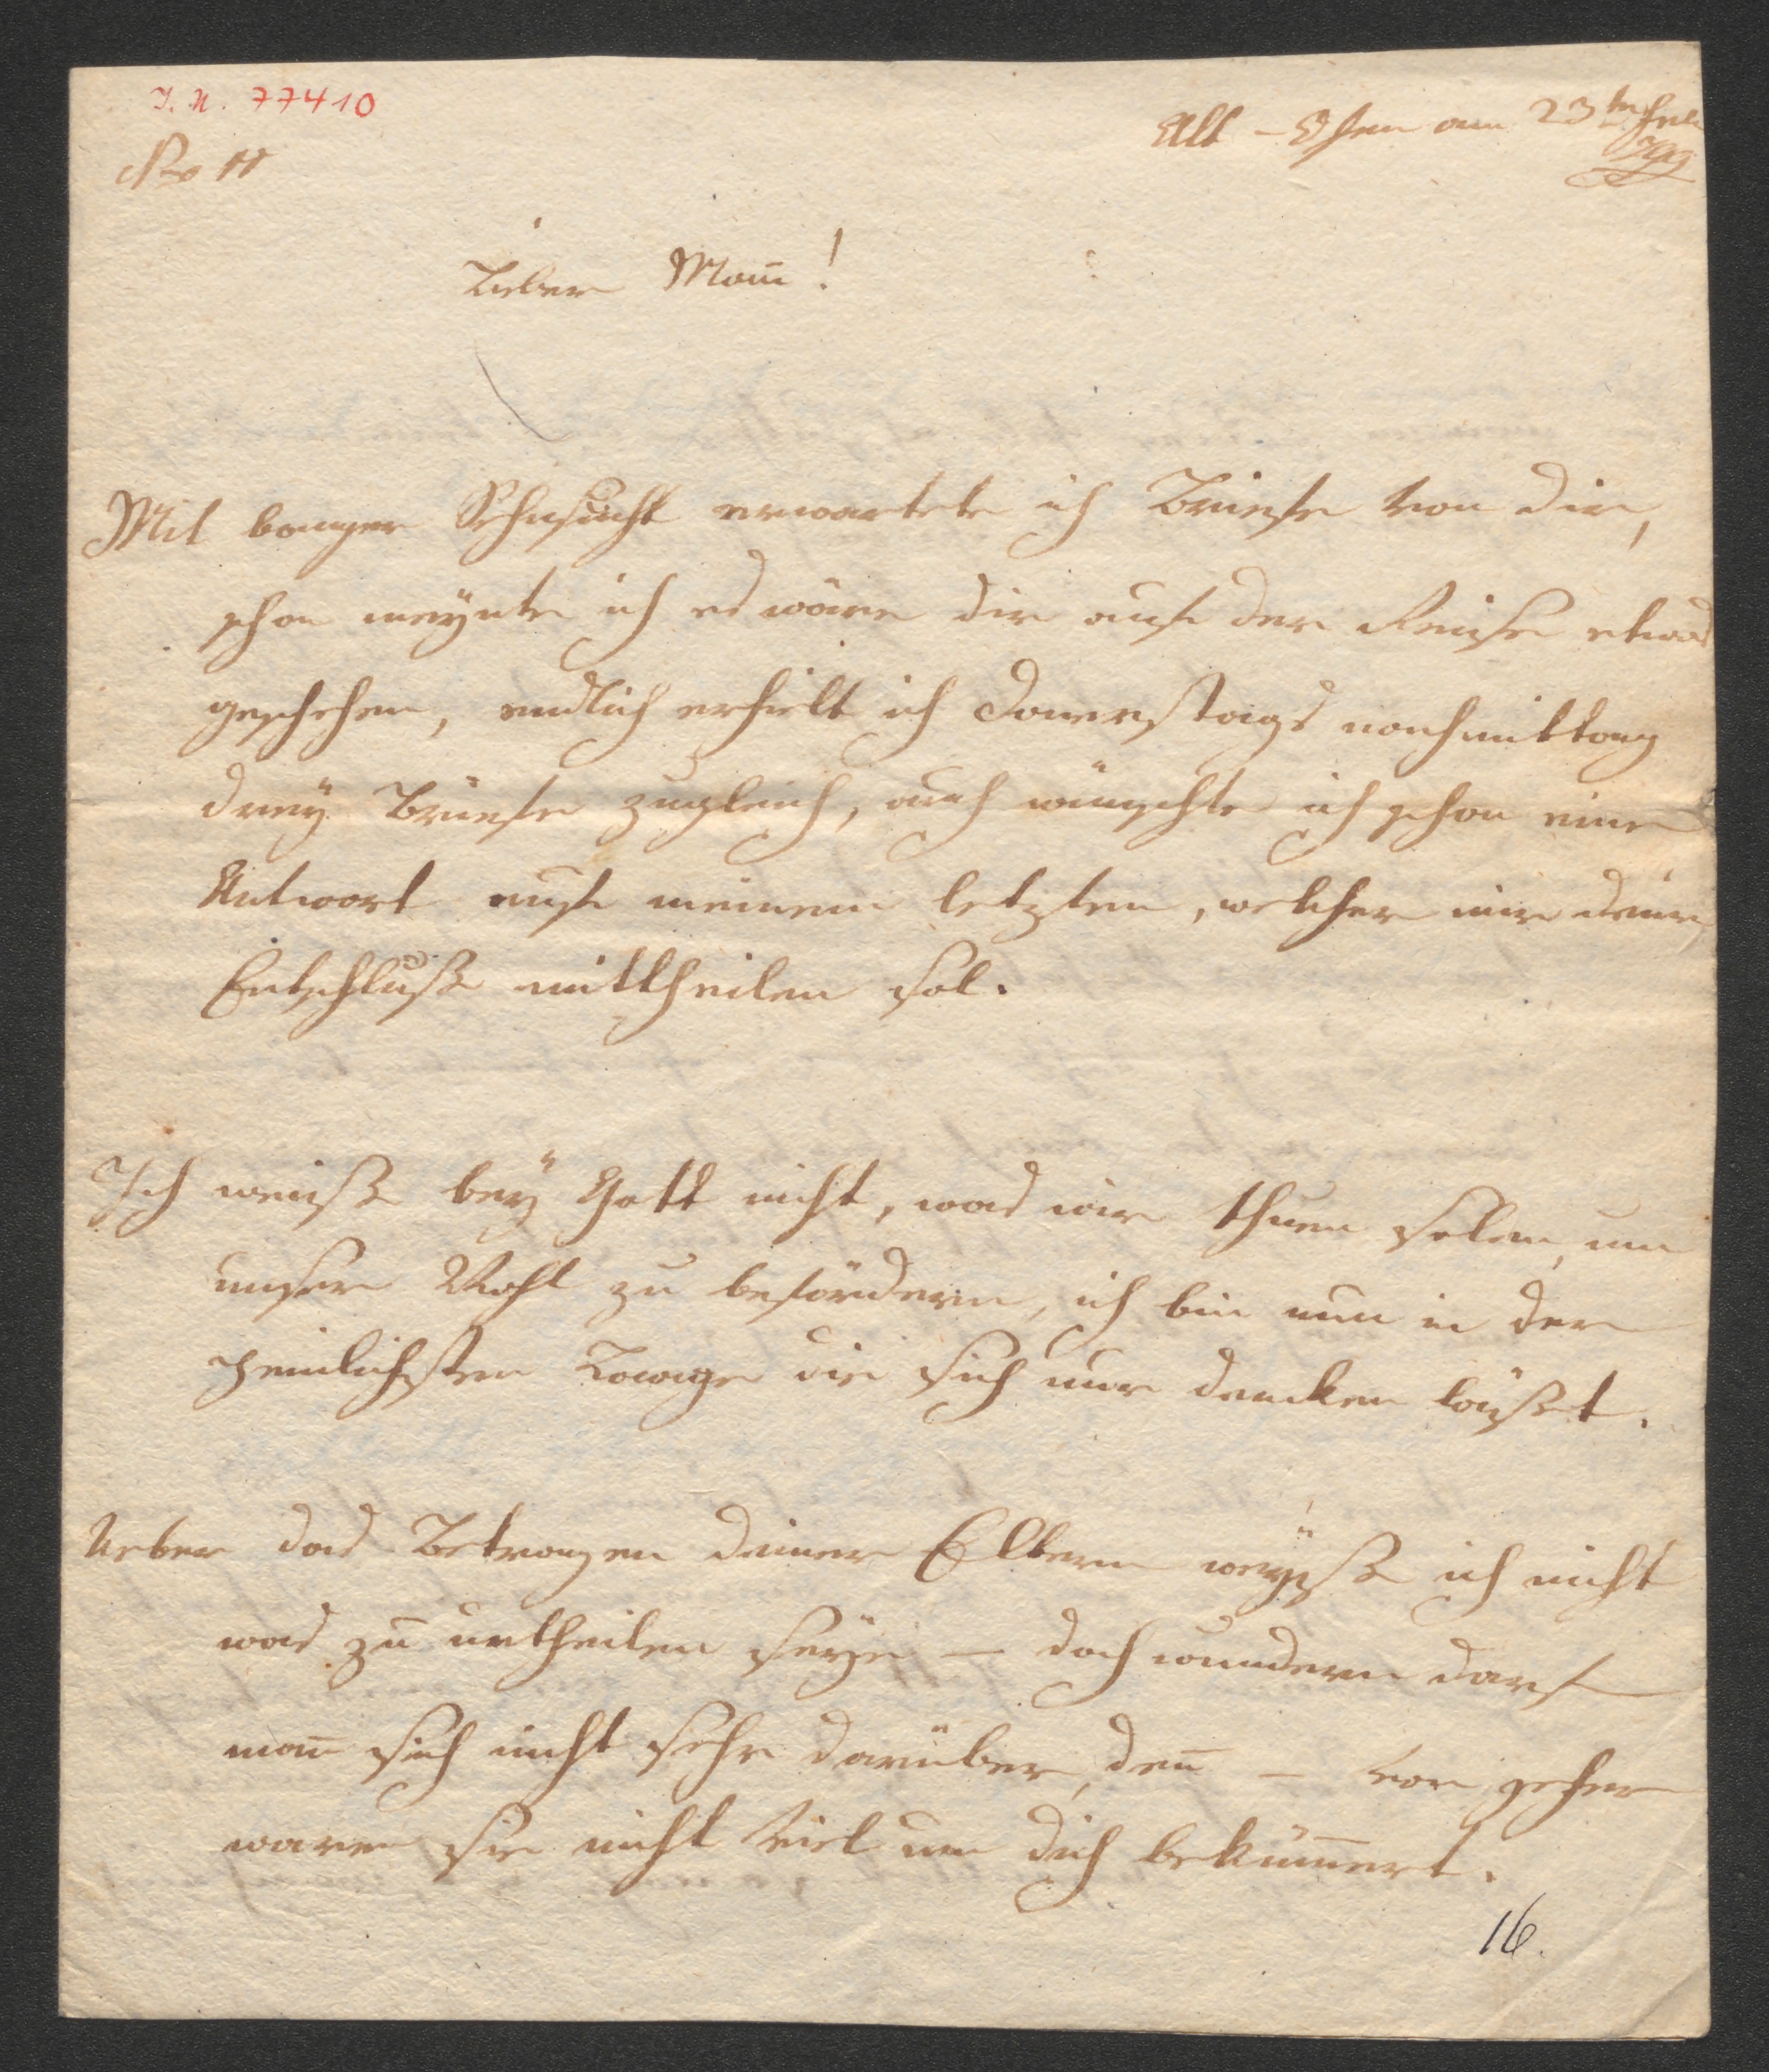 I. N. 77410
Alt-Ofen am 23ten Feb
No 11
799
Lieber Man̅!
Mit banger Sehnsucht erwartete ich Briefe von dir,
schon meynte ich es wäre dir auf der Reise etwas
geschehen, endlich erhielt ich Donerstags nachmittag
drey Briefe zugleich, auch wünschte ich schon eine
Antwort auf meinem letzten, welcher mir deine
Entschluß mittheilen sol.
Ich weiß bey Gott nicht, was wir thuen solen, um
unser Wohl zu befördern, ich bin nun in der
peinlichsten Laage die sich nur dencken läßt.
Ueber das Betragen deiner Eltern weyß ich nicht
was zu urtheilen seye — doch wundern darf
man̅ sich nicht sehr darüber, den̅ — vor hehr
waren sie nicht viel um dich beküm̅ert.
16.